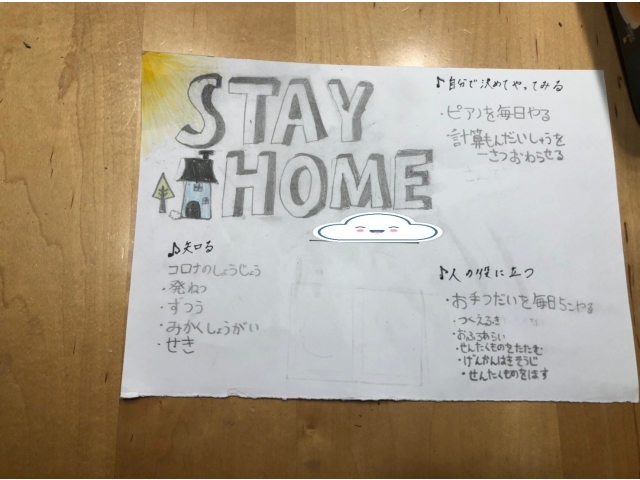 STAY
HOME
♪知る
コロナのしょうじょう
・発ねつ
・ずつう
・みかくしょうがい
・せき
♪自分で決めてやってみる
・ピアノを毎日やる
計算もんだいしゅうを
一さつおわらせる
♪人の役に立つ
・お手つだいを毎日5こやる
・つくえふき
・おふろあらい
・せんたくものをたたむ
・げんかんはきそうじ
・せんたくものをほす